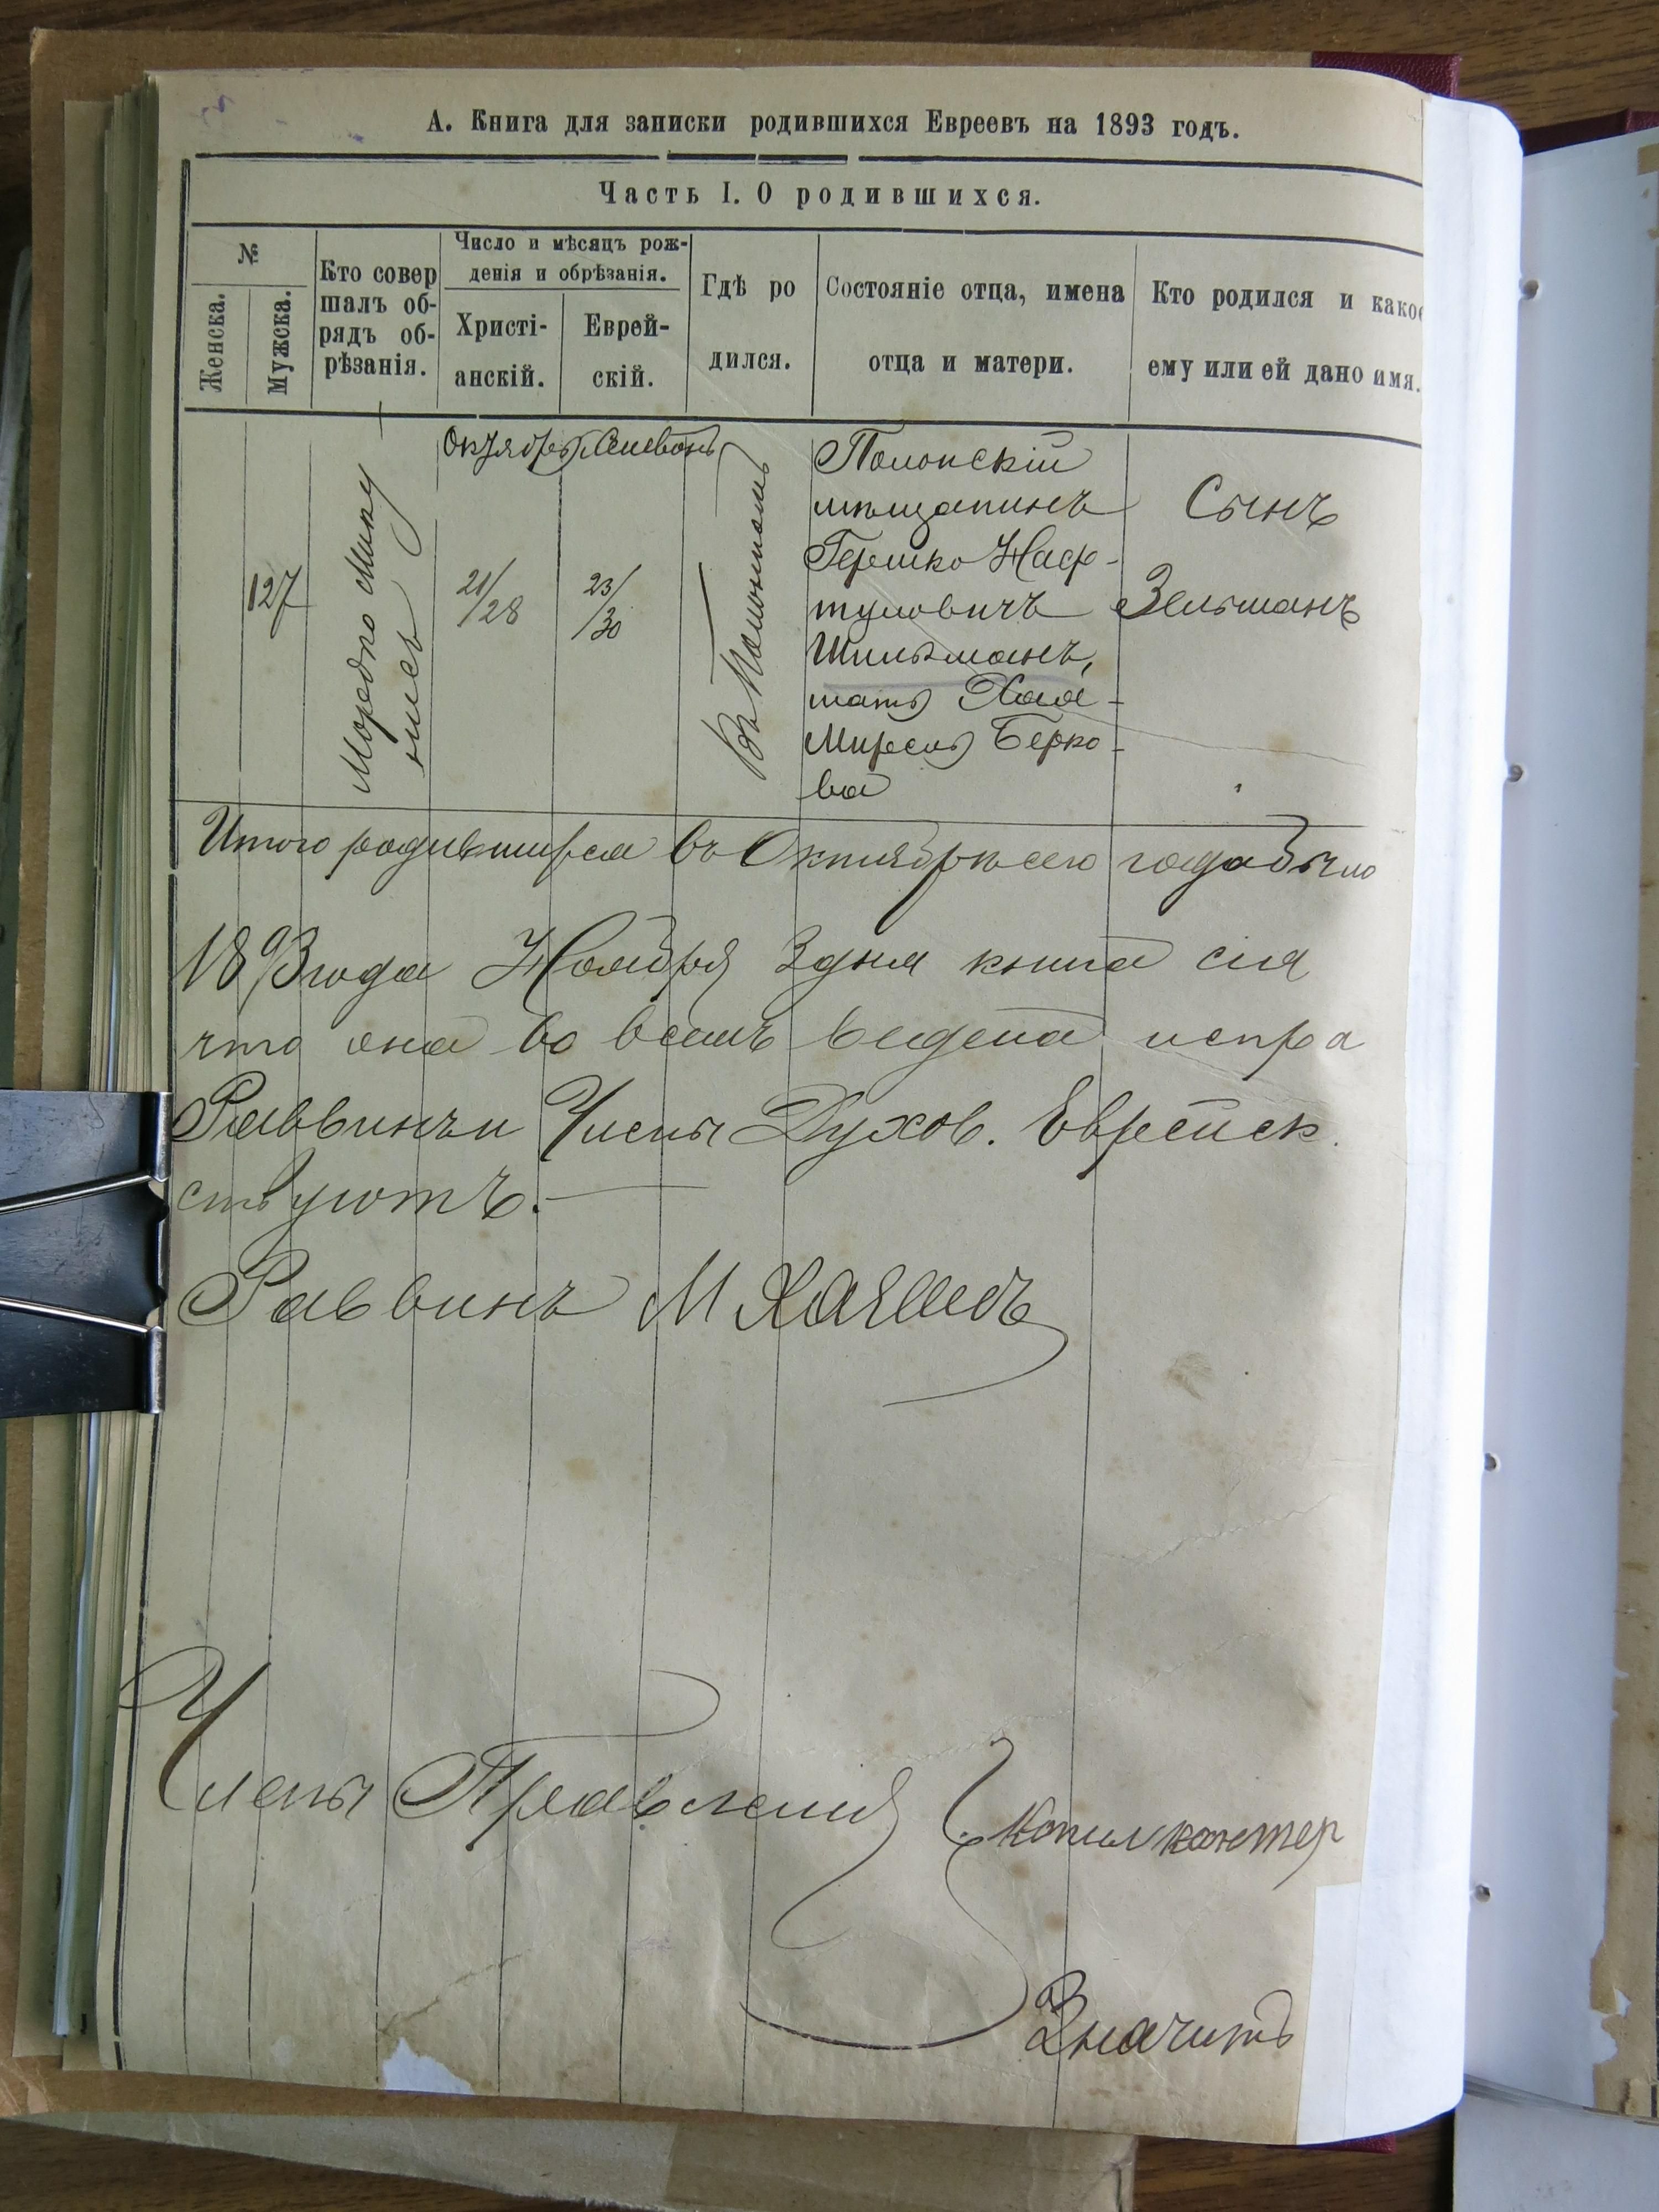 А. Книга для записки родившихся Евреевъ на 1893 годъ.
Часть I. О родившихся.
№
Женска.
Мужска.
Кто совер
шалъ об-
рядъ об-
рѣзанія.
Число и мѣсяцъ рож-
денія и обрѣзанія.
Христі-
анскій.
Еврей-
скій.
Гдѣ ро
дился.
Состояніе отца, имена
отца и матери.
Кто родился и какое
ему или ей дано имя.
127
Мордко
Октябрь
21/28
23/30
Въ
Полонскій
мѣщанинъ
Гершко Наф-
туловичъ
Шильманъ,
мать Хая-
Миреля Берко-
ва
Сынъ
Зельманъ
Итого родившихся въ Октябрѣ сего года было
1893 года Ноября 3 дня книга сія
что она во всемъ ведена испра
Раввинъ и Члены Духов. Еврейск.
ствуютъ.
Раввинъ М
Члены Правленія
Значитъ